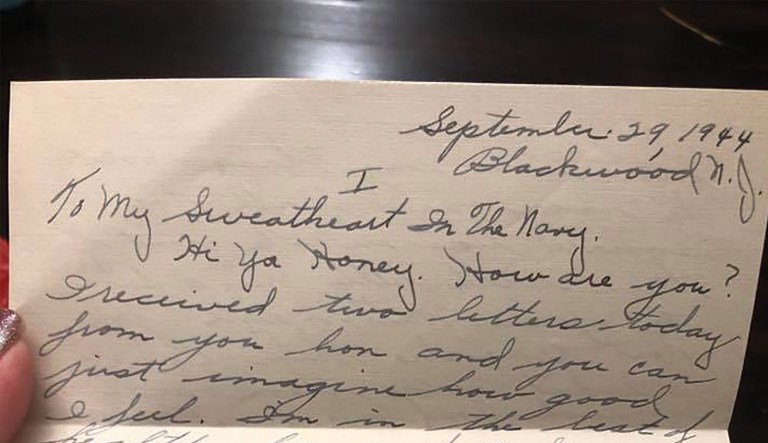 September 29, 1944
Blackwood N.J.
I
To My Sweetheart In The Navy.
Hi Ya Honey. How are you?
I received two letters today
from you hon and you can
just imagine how good
I feel. I'm in the best of